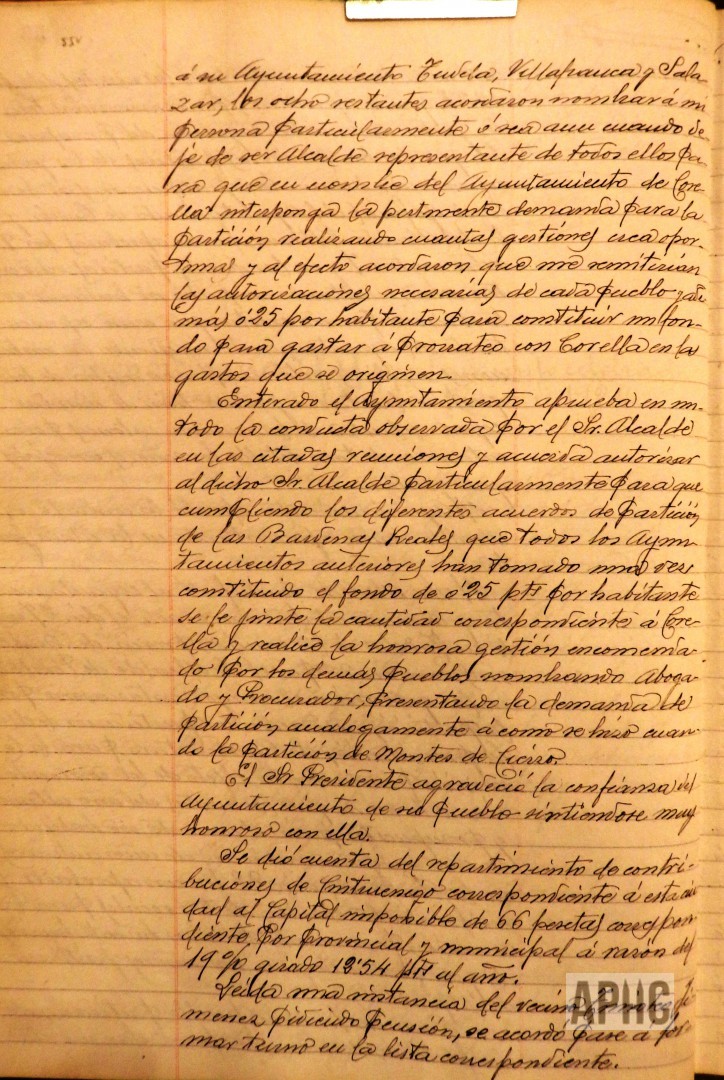 á su Ayuntamiento Tudela, Villafranca y Sala-
zar, los ocho restantes acordaron nombrar á mi
persona particularmente ó sea aun cuando de-
je de ser Alcalde representante de todos ellos pa-
ra que en nombre del Ayuntamiento de Core-
lla interponga la pertinente demanda para la
partición realizando cuantas gestiones crea opor-
tunas y al efecto acordaron que me remitirían
las autorizaciones necesarias de cada pueblo y ade
más 0'25 por habitante para constituir un fon-
do para gastar á prorrateo con Corella en los
gastos que se originen.
Enterado el Ayuntamiento aprueba en un
todo la conducta observada por el Sr. Alcalde
en las citadas reuniones y acuerda autorizar
al dicho Sr. Alcalde particularmente para que
cumpliendo los diferentes acuerdos de partición
de las Bardenas Reales que todos los Ayun-
tamientos anteriores han tomado una vez
constituido el fondo de 0'25 pts por habitante
se le junte la cantidad correspondiente á Core-
lla y realice la honrosa gestión encomenda-
do por los demás pueblos nombrando Aboga-
do y Procurador, presentando la demanda de
partición analogamente á como se hizo cuan-
do la partición de Montes de Cierzo.
El Sr Presidente agradeció la confianza del
Ayuntamiento de su pueblo sintiendose muy
honroso con ella.
Se dió cuenta del repartimiento de contri-
buciones de correspondiente á esta ciu
dad al Capital imponible de 66 pesetas correspon
diente, por provincial y municipal á razon del
19 % girado 12'54 pts al año.
Leida una instancia del vecino Ji
menez pidiendo pensión, se acordó pase a for
mar turno en la lista correspondiente.
APHC